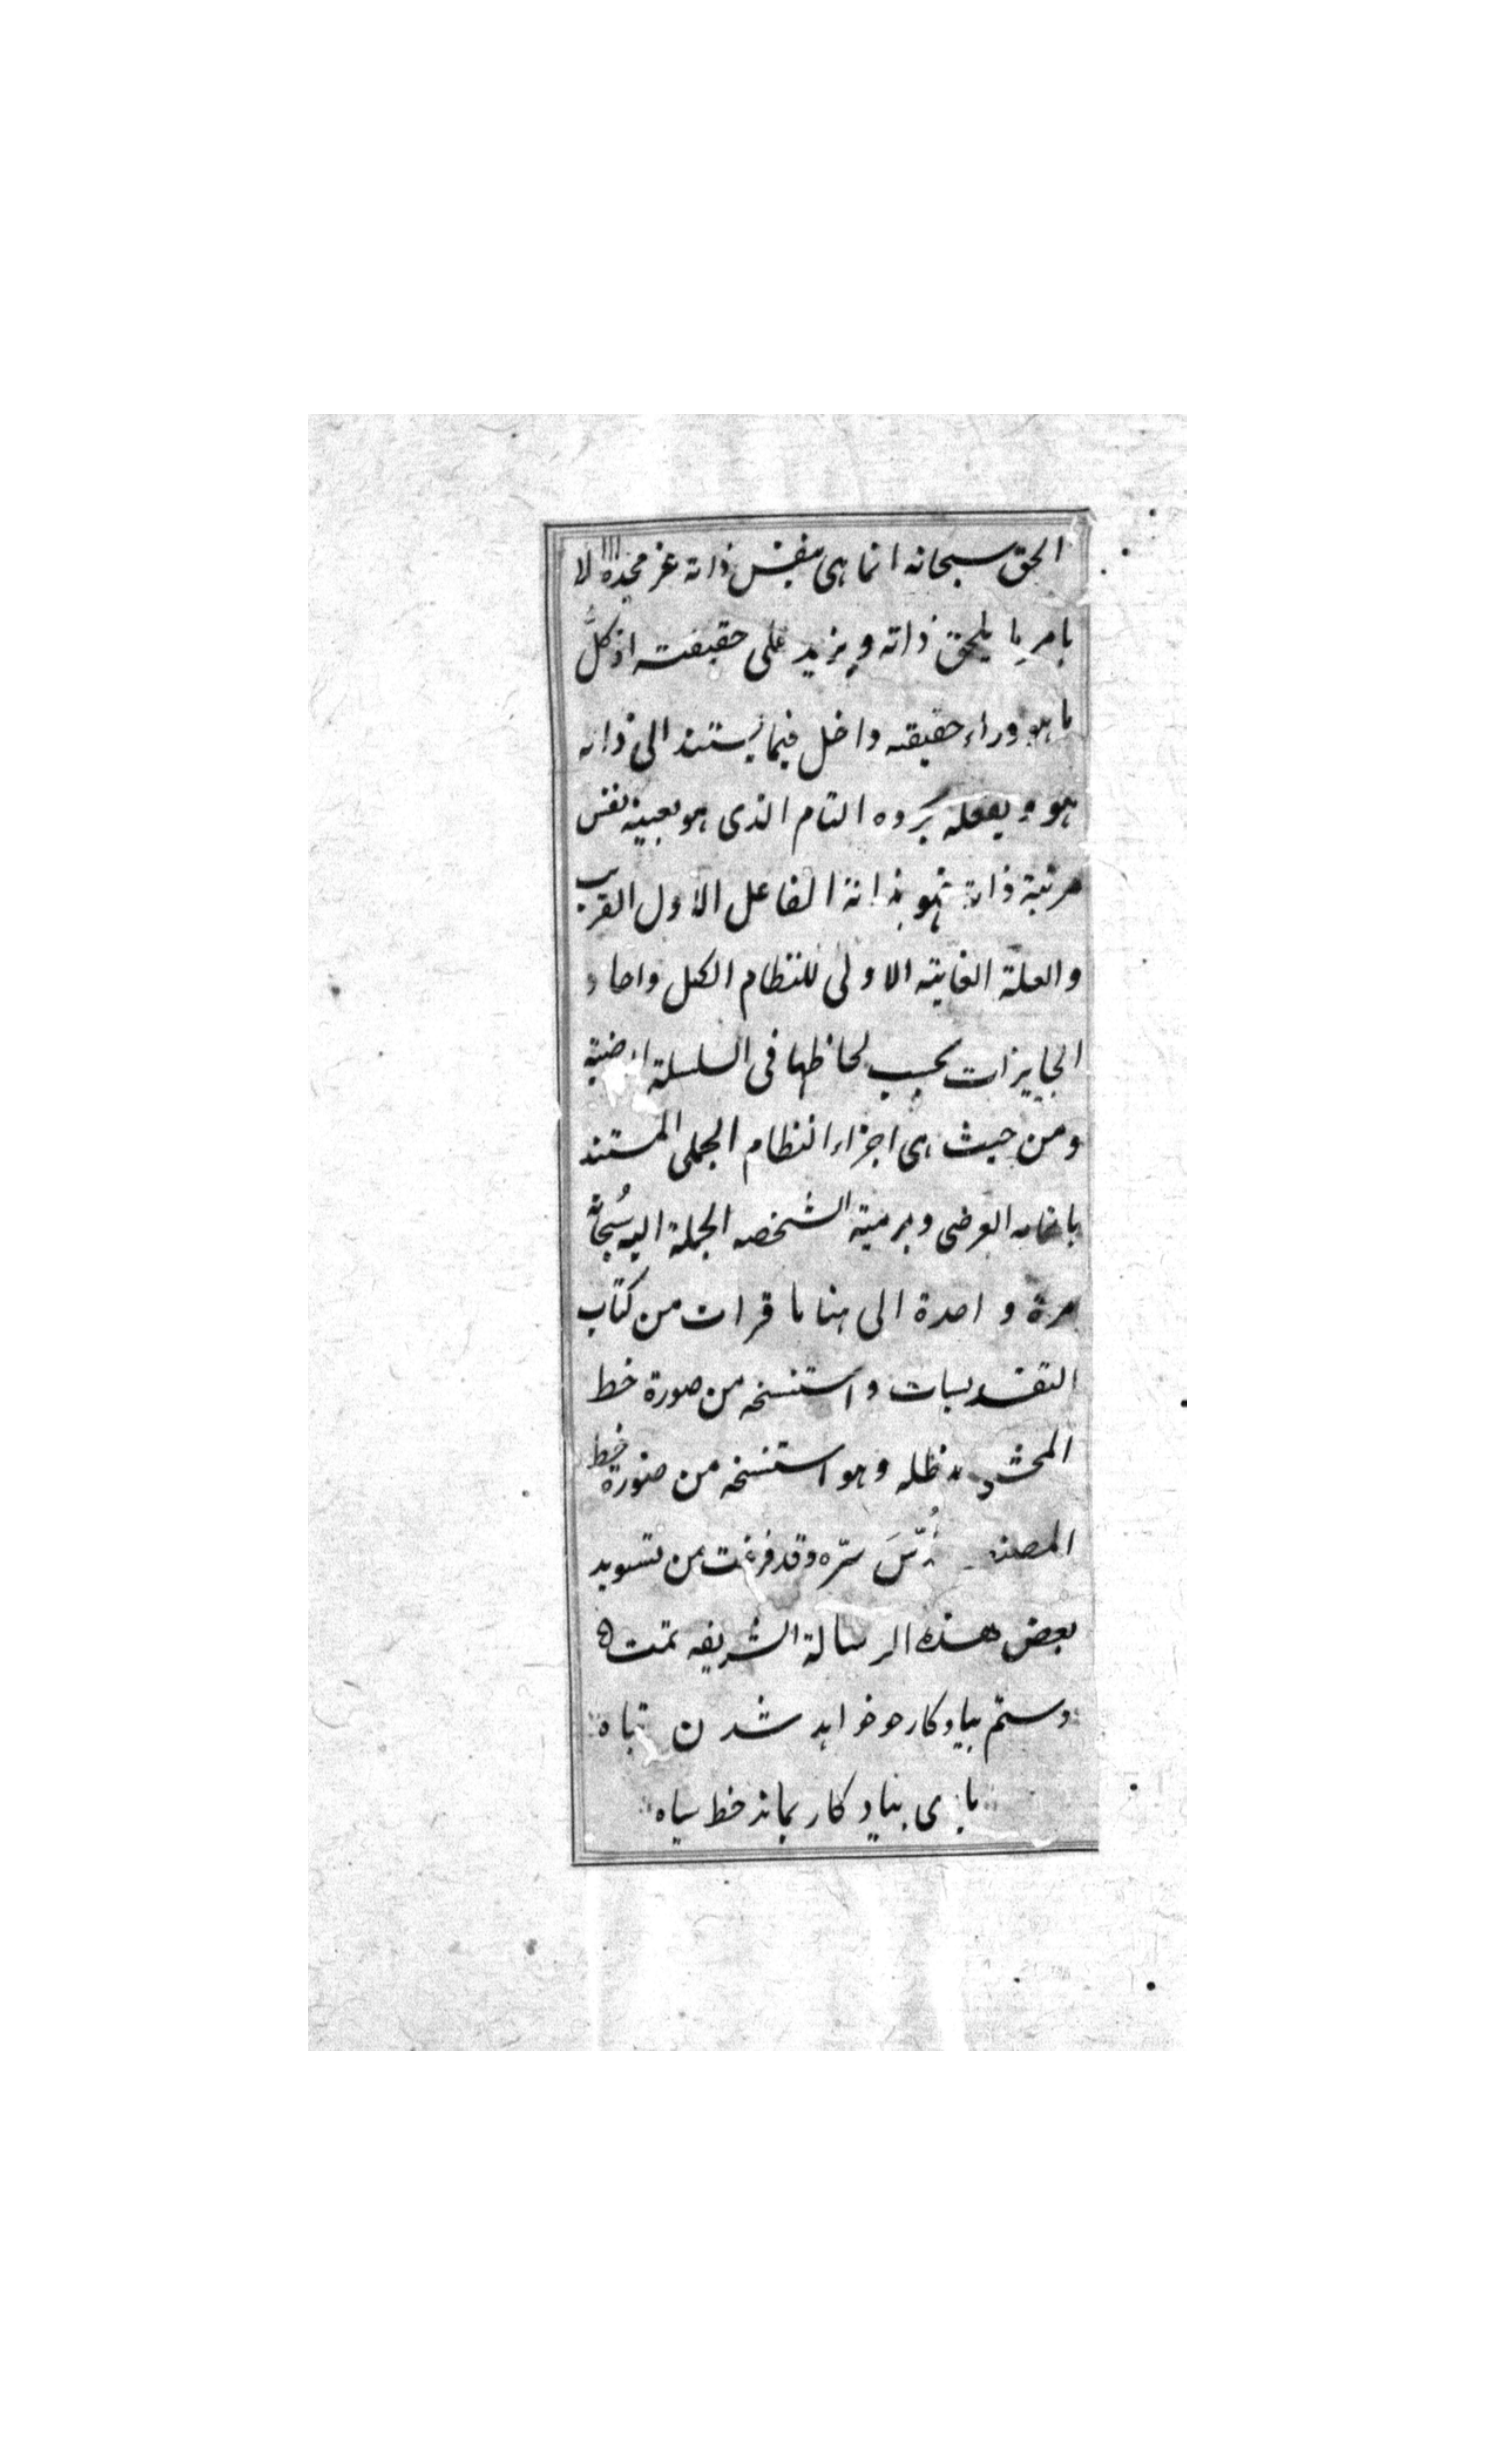 الحق سبحانه انما هی بنفس ذاته عز مجده لا
بامر ما یلحق ذاته ویزید علی حقیقته اذ كلّ
ما هو وراء حقیقته داخل فیما یستند الی ذاته
هو یفعله التام الذی هو بعینه نفس
مرتبة ذاته فهو بذاته الفاعل الاول القریب
والعلة الغایته الاولی للنظام الكل واحاد
الجایزات بحسب لحاظها فی السلسلة
ومن حیث هی اجزاء النظام الجملی المستند
العرضی الشخصه الجملة الیه سُبحانه
مرة واحدة الی هنا ما قرات من كتاب
التقدیسات واستنسخه من صورة خط
المحشی مد ظله وهو استنسخه من صورة خط
المصنف قُدّسَ سرّه وقد فرغت من تسوید
بعض هذه الرسالة الشریفه تمت
دستم بیاد كار چو خواهد شدن تباه
باری بیاد كار بماند خط سیاه